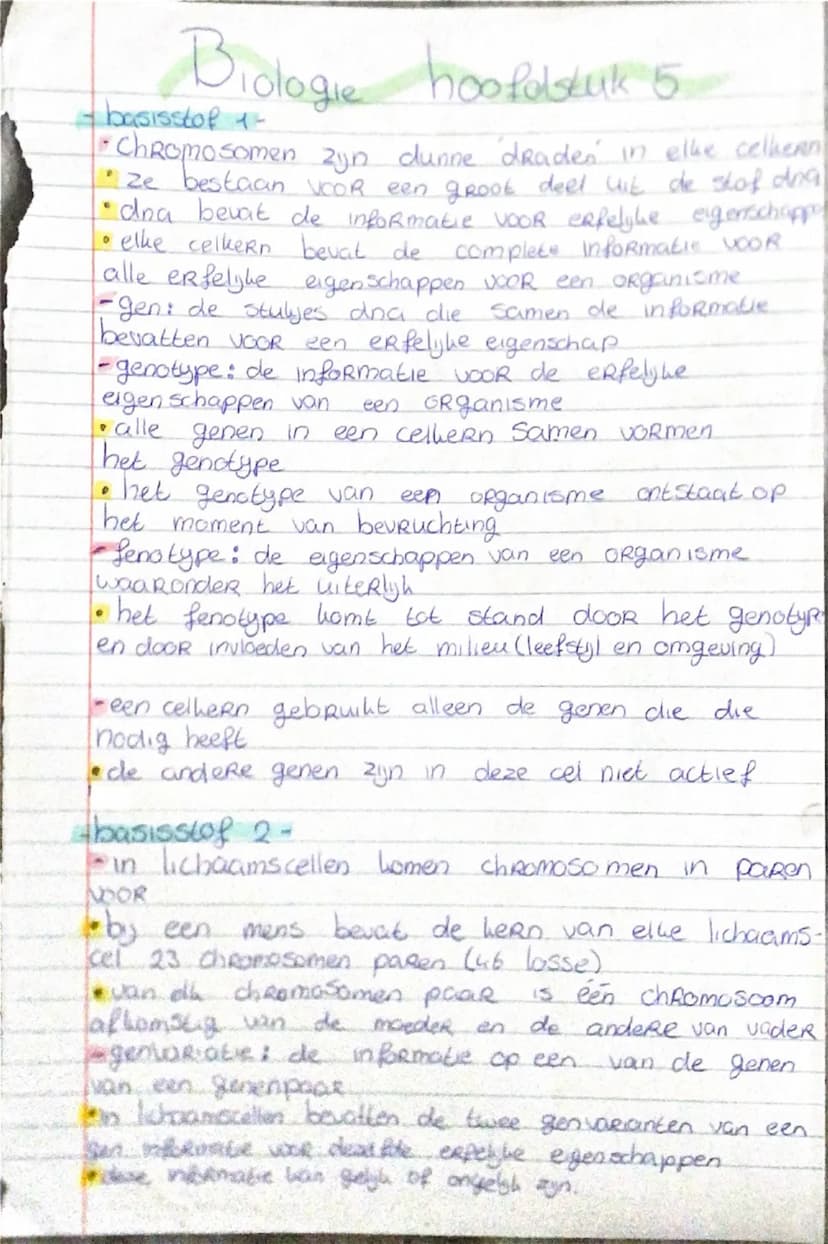 Biologie hoofdstuk 5
- basisstof 1 -
• Chromosomen zijn dunne 'draden' in elke celkern
• ze bestaan voor een groot deel uit de stof dna
• dna bevat de informatie voor erfelijke eigenschappe
• elke celkern bevat de complete informatie voor
alle erfelijke eigenschappen voor een organisme
- gen: de stukjes dna die samen de informatie
bevatten voor een erfelijke eigenschap
- genotype: de informatie voor de erfelijke
eigenschappen van een organisme
• alle genen in een celkern samen vormen
het genotype
• het genotype van een organisme ontstaat op
het moment van bevruchting
- fenotype: de eigenschappen van een organisme
waaronder het uiterlijk
• het fenotype komt tot stand door het genotyp
en door invloeden van het milieu (leefstijl en omgeving)
- een celkern gebruikt alleen de genen die die
nodig heeft
• de andere genen zijn in deze cel niet actief
- basisstof 2 -
- in lichaamscellen komen chromosomen in paren
voor
• bij een mens bevat de kern van elke lichaams-
cel 23 chromosomen paren (46 losse)
• van elk chromosomen paar is één chromosoom
afkomstig van de moeder en de andere van vader
- genvariatie: de informatie op een van de genen
van een genenpaar
• in lichaamscellen bevatten de twee genvarianten van een
gen informatie voor dezelfde erfelijke eigenschappen
• deze informatie kan gelijk of ongelijk zijn.